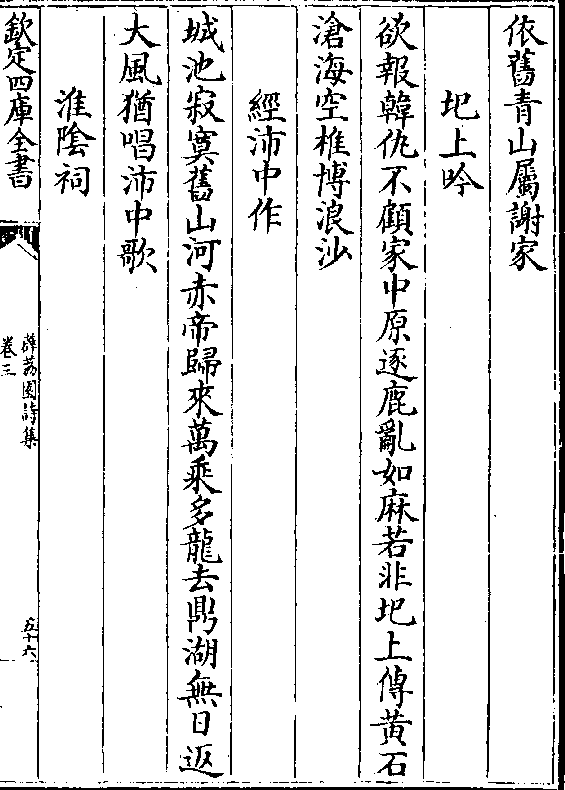 依舊青山屬謝家
圯上吟
欲報韓仇不顧家中原逐鹿亂如麻若非圯上傳黄石
滄海空椎博浪沙
經沛中作
城池寂寞舊山河赤帝歸來萬乘多龍去鼎湖無日返
大風猶唱沛中歌
淮陰祠
欽定四庫全書
薜荔園詩集
卷三
五十六